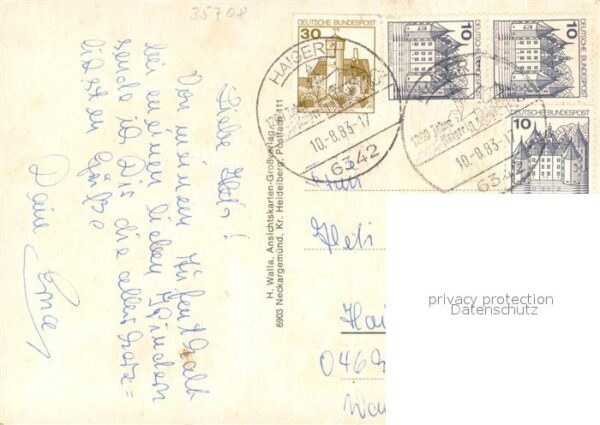 35708
Liebe Heti!
Von meinem Aufenthalt
bei meinen lieben Kindern
sende ich Dir die allerherz=
lichsten Grüße
Deine Erna
H. Walla, Ansichtskarten-Großverlag
6903 Neckargemünd, Kr. Heidelberg, Postfach 111
DEUTSCHE BUNDESPOST
30
DEUTSCHE BUNDESPOST
10
DEUTSCHE BUNDESPOST
10
DEUTSCHE BUNDESPOST
10
HAIGER
10.-8.83.-17
6342
10.-8.83.-
6342
Heti
Hai
046
privacy protection
Datenschutz